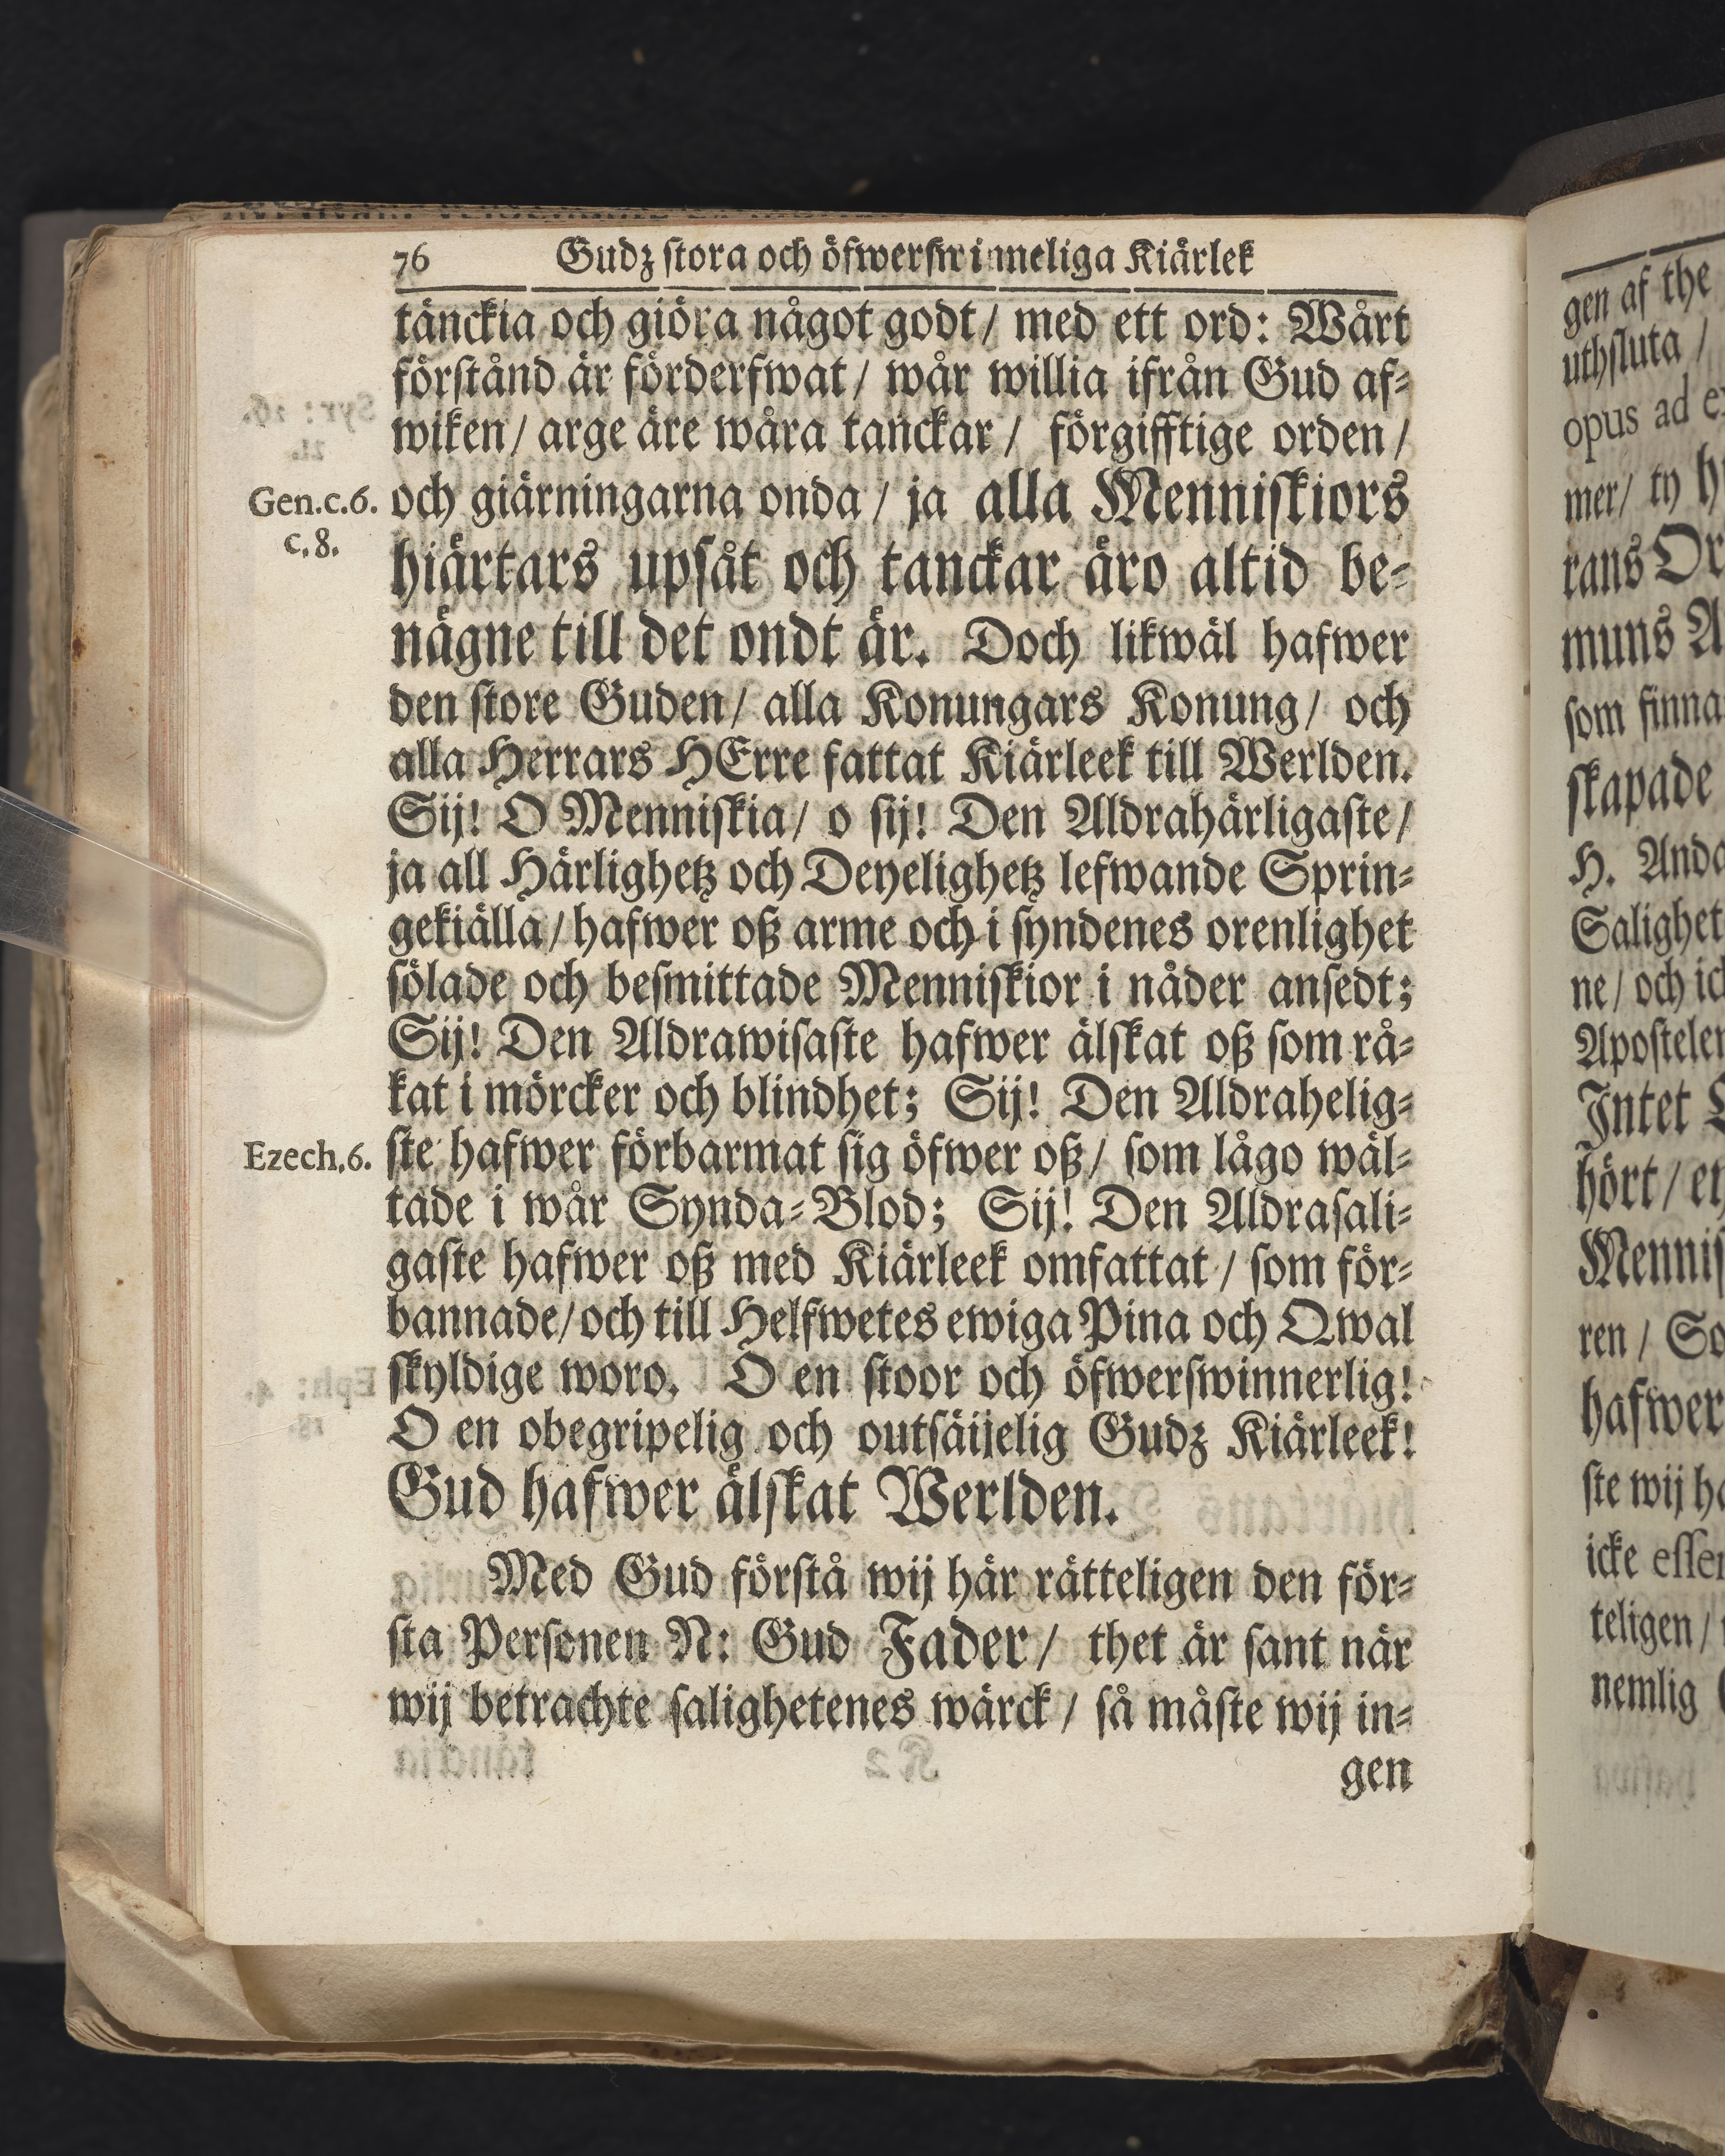 76 Gudz stora och öfwerswimeliga Kiärlek
tänckia och giöra något godt / med ett ord: Wårt
förstånd är förderfwat / wår willia ifrån Gud af-
wiken / arge äre wåra tanckar / förgifftige orden /
Gen.c.6. och giärningarna onda / ja alla Menniskiors
c.8.
hiärtars upsåt och tanckar äro altid be-
nägne till det ondt är. Doch likwäl hafwer
den store Guden / alla Konungars Konung / och
alla Herrars HErre fattat Kiärleek till Werlden.
Sij! O Menniskia / o sij! Den Aldrahärligaste /
ja all Härlighetz och Deyelighetz lefwande Sprin-
gekiälla / hafwer oß arme och i syndenes orenlighet
sölade och besmittade Menniskior i nåder ansedt;
Sij! Den Aldrawisaste hafwer älskat oß som rå-
kat i mörcker och blindhet; Sij! Den Aldrahelig-
Ezech.6. ste hafwer förbarmat sig öfwer oß / som lågo wäl-
tade i wår Synda-Blod; Sij! Den Aldrasali-
gaste hafwer oß med Kiärleek omfattat / som för-
bannade / och till Helfwetes ewiga Pina och Qwal
skyldige woro. O en stoor och öfwerswinnerlig!
O en obegripelig och outsäijelig Gudz Kiärleek!
Gud hafwer älskat Werlden.
Med Gud förstå wij här rätteligen den för-
sta Personen N: Gud Fader / thet är sant när
wij betrachte salighetenes wärck / så måste wij in-
gen
gen af the
uthsluta /
opus ad
mer / ty
rans
muns
som finna
skapade
H.
Salighet
ne / och
Apostelen
Intet
hört /
Mennis
ren / So
hafwer
ste wij
icke
teligen /
nemlig